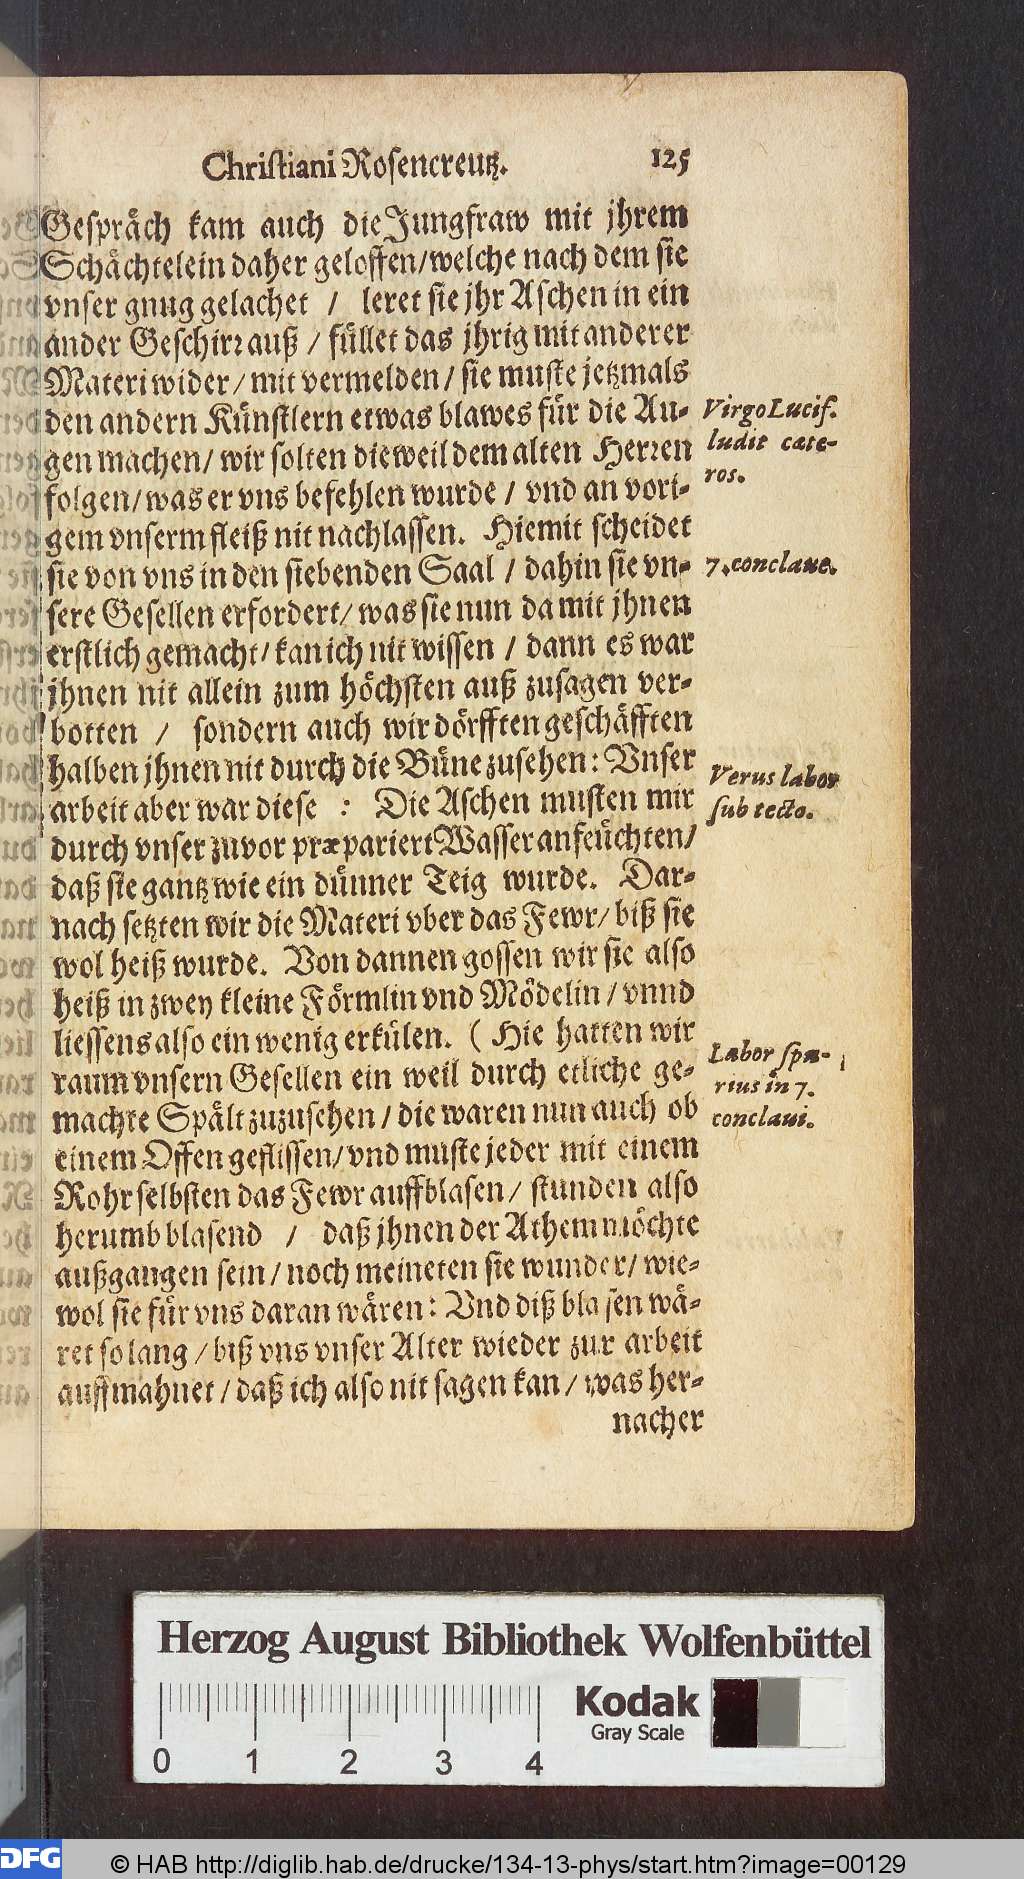 Christiani Rosencreutz.
125
Gespräch kam auch die Jungfraw mit jhrem
Schächtelein daher geloffen/welche nach dem sie
vnser gnug gelachet / leret sie jhr Aschen in ein
ander Geschirr auß / füllet das jhrig mit anderer
Materi wider/ mit vermelden/ sie muste jetzmals
den andern Künstlern etwas blawes für die Au-
gen machen/ wir solten die weil dem alten Herren
folgen/ was er vns befehlen wurde / vnd an vori-
gem vnserm fleiß nit nachlassen. Hiemit scheidet
sie von vns in den siebenden Saal / dahin sie vn-
sere Gesellen erfordert/ was sie nun damit jhnen
erstlich gemacht/ kan ich nit wissen / dann es war
jhnen nit allein zum höchsten auß zusagen ver-
botten / sondern auch wir dörfften geschäfften
halben jhnen nit durch die Büne zusehen: Vnser
arbeit aber war diese : Die Aschen musten mir
durch vnser zuvor præpariert Wasser anfeüchten/
daß sie gantz wie ein dünner Teig wurde. Dar-
nach setzten wir die Materi vber das Fewr/ biß sie
wol heiß wurde. Von dannen gossen wir sie also
heiß in zwey kleine Förmlin vnd Mödelin / vnnd
liessens also ein wenig erkülen. ( Hie hatten wir
raum vnsern Gesellen ein weil durch etliche ge-
machte Spält zuzusehen / die waren nun auch ob
einem Offen geflissen/ vnd muste jeder mit einem
Rohr selbsten das Fewr auffblasen / stunden also
herumb blasend / daß jhnen der Athem möchte
außgangen sein / noch meineten sie wunder/ wie-
wol sie für vns daran wären: Vnd diß blasen wä-
ret so lang / biß vns vnser Alter wieder zur arbeit
auffmahnet / daß ich also nit sagen kan / was her-
nacher
Virgo Lucif.
ludit cæte-
ros.
7. conclaue.
Verus labor
sub tecto.
Labor spu-
rius in 7.
conclaui.
Herzog August Bibliothek Wolfenbüttel
Kodak
Gray Scale
0 1 2 3 4
DFG
© HAB http://diglib.hab.de/drucke/134-13-phys/start.htm?image=00129